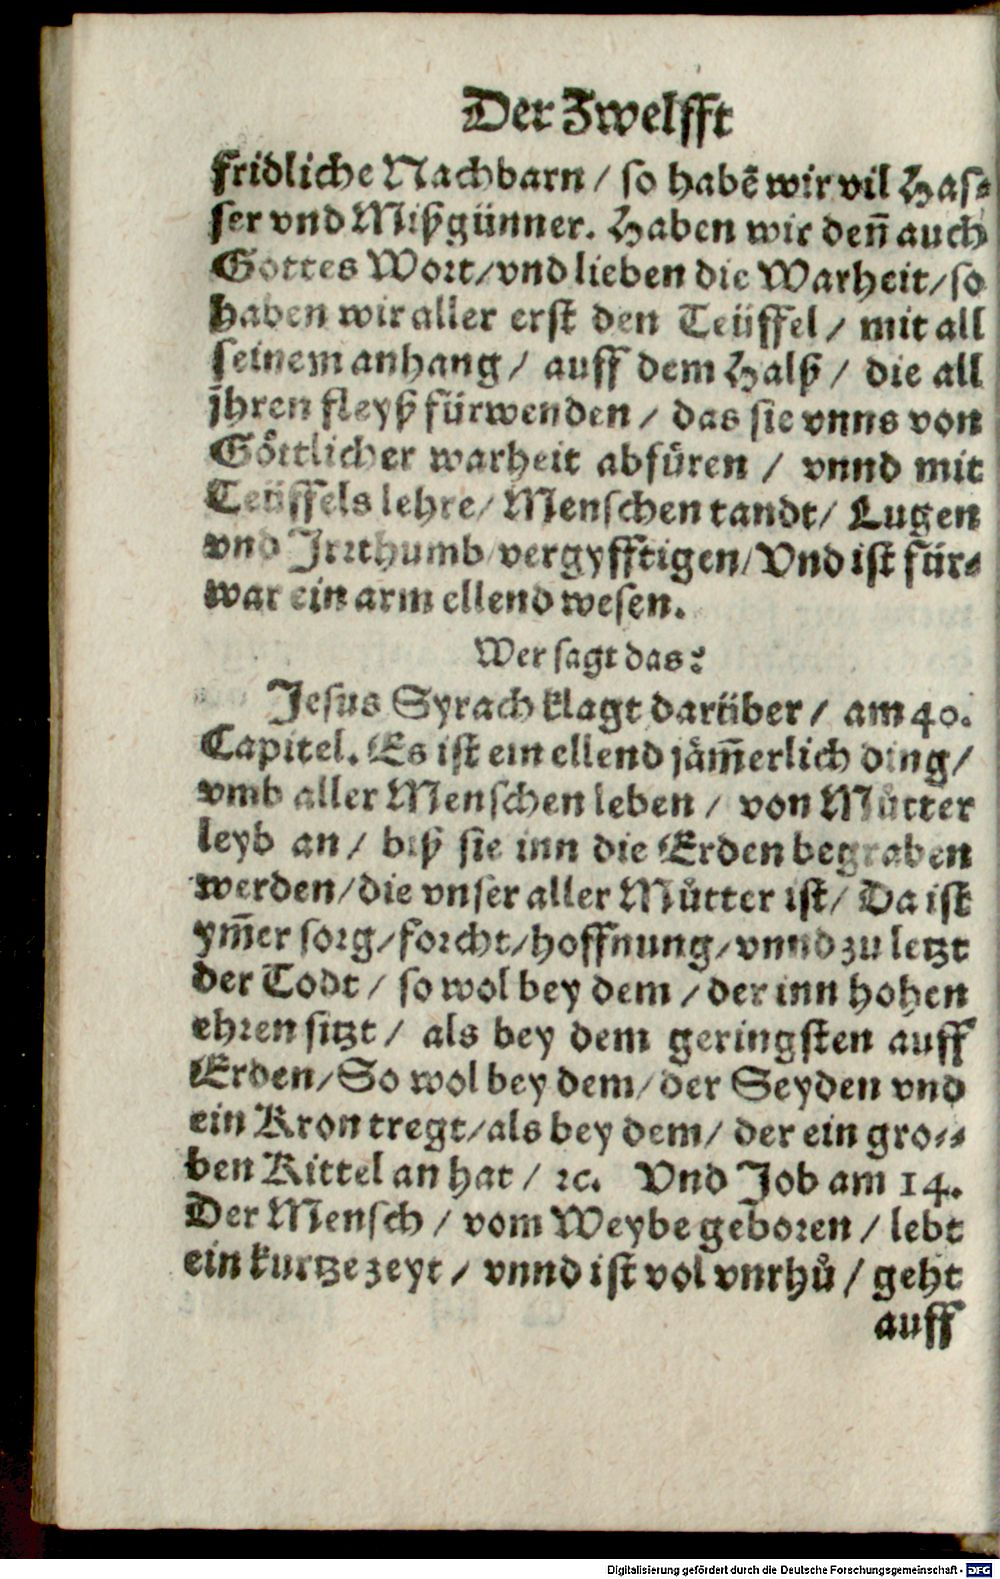 Der Zwelfft
fridliche Nachbarn / so habẽ wir vil Has⸗
ser vnd Mißgünner. Haben wir deñ auch
Gottes Wort/vnd lieben die Warheit/so
haben wir aller erst den Teüffel / mit all
seinem anhang / auff dem Halß / die all
jhren fleyß fürwenden / das sie vnns von
Göttlicher warheit abfüren / vnnd mit
Teüffels lehre/ Menschen tandt/ Lugen
vnd Jrrthumb vergyfftigen/ Vnd ist für⸗
war ein arm ellend wesen.
Wer sagt das?
Jesus Syrach klagt darüber / am 40.
Capitel. Es ist ein ellend jäm̃erlich ding /
vmb aller Menschen leben / von Můtter
leyb an / biß sie inn die Erden begraben
werden/die vnser aller Můtter ist/ Da ist
ym̃er sorg/forcht/hoffnung/vnnd zu letzt
der Todt / so wol bey dem / der inn hohen
ehren sitzt / als bey dem geringsten auff
Erden/So wol bey dem/ der Seyden vnd
ein Kron tregt/als bey dem/ der ein gro⸗⸗
ben Kittel an hat / ꝛc. Vnd Job am 14.
Der Mensch / vom Weybe geboren / lebt
ein kurtze zeyt / vnnd ist vol vnrhů / geht
auff
Digitalisierung gefördert durch die Deutsche Forschungsgemeinschaft - DFG